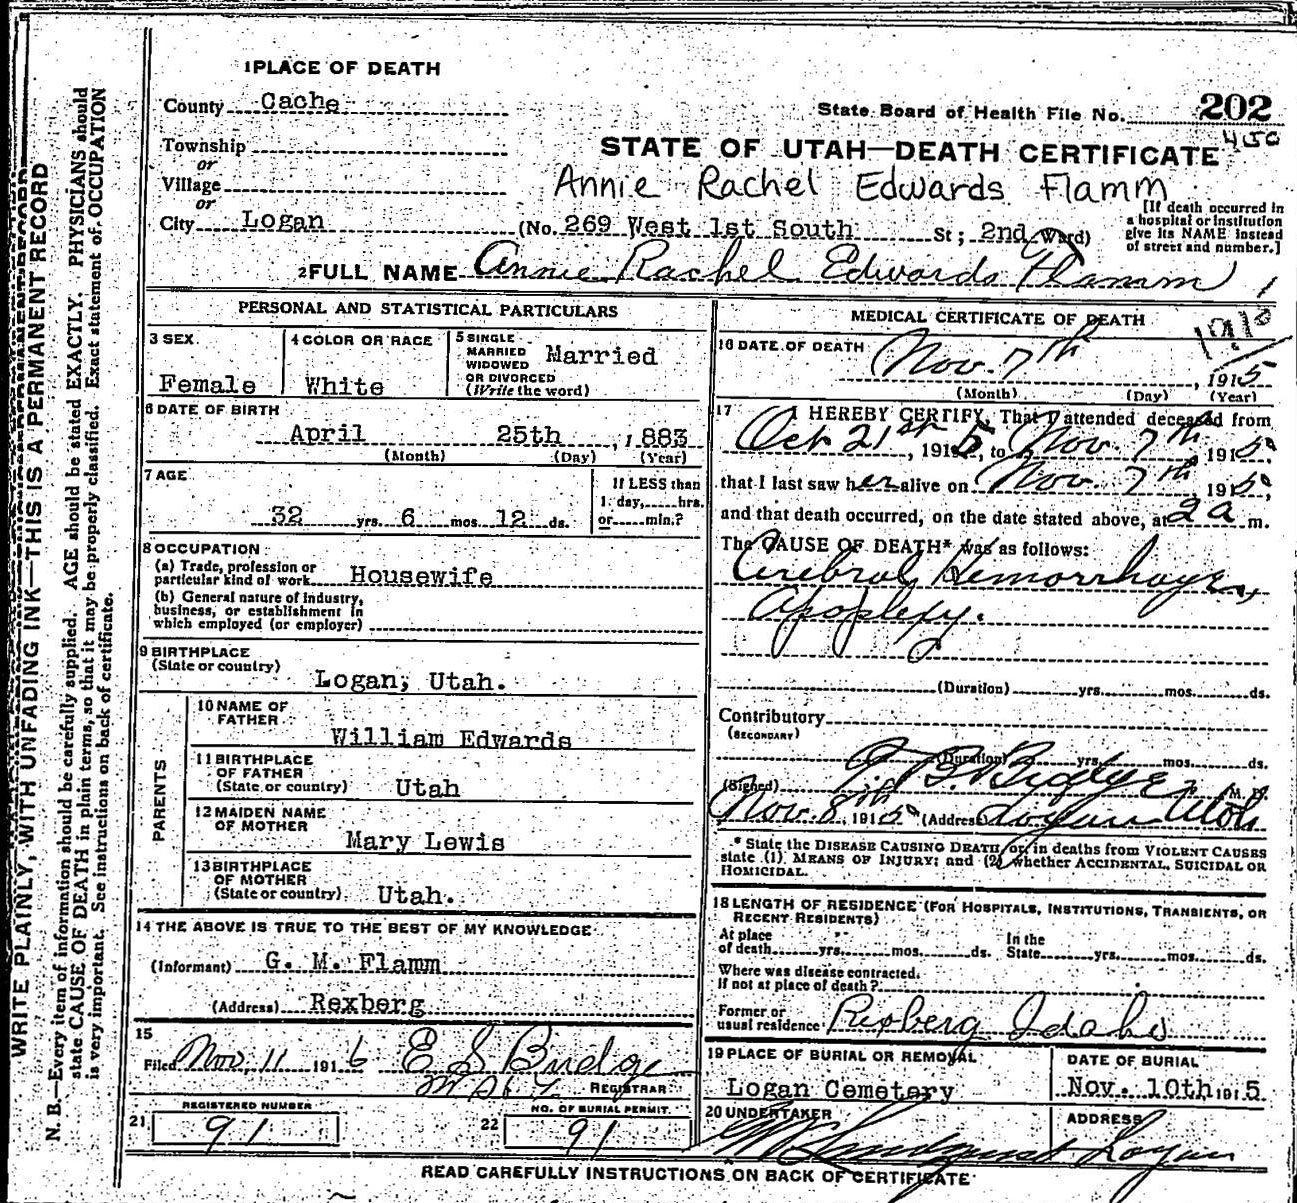 1 PLACE OF DEATH
County Cache
State Board of Health File No. 202
450
Township
or
Village
or
City Logan
STATE OF UTAH—DEATH CERTIFICATE
Annie Rachel Edwards Flamm
(No. 269 West 1st South St; 2nd Ward)
[If death occurred in
a hospital or institution
give its NAME instead
of street and number.]
2 FULL NAME Annie Rachel Edwards Flamm
PERSONAL AND STATISTICAL PARTICULARS
3 SEX
Female
4 COLOR OR RACE
White
5 SINGLE
MARRIED
WIDOWED
OR DIVORCED
(Write the word)
Married
6 DATE OF BIRTH
April 25th, 1883
(Month) (Day) (Year)
7 AGE
32 yrs. 6 mos. 12 ds.
If LESS than
1 day, hrs.
or min.?
8 OCCUPATION
(a) Trade, profession or
particular kind of work Housewife
(b) General nature of industry,
business, or establishment in
which employed (or employer)
9 BIRTHPLACE
(State or country)
Logan, Utah.
PARENTS
10 NAME OF
FATHER
William Edwards
11 BIRTHPLACE
OF FATHER
(State or country) Utah
12 MAIDEN NAME
OF MOTHER
Mary Lewis
13 BIRTHPLACE
OF MOTHER
(State or country) Utah.
14 THE ABOVE IS TRUE TO THE BEST OF MY KNOWLEDGE
(Informant) G. M. Flamm
(Address) Rexberg
15
Filed Nov. 11 1916 E S Budge
REGISTRAR
21 REGISTERED NUMBER
91
22 NO. OF BURIAL PERMIT.
91
MEDICAL CERTIFICATE OF DEATH
16 DATE OF DEATH
Nov. 7th, 1915
(Month) (Day) (Year)
17 I HEREBY CERTIFY, That I attended deceased from
Oct 21st, 1915, to Nov. 7th 1915,
that I last saw her alive on Nov. 7th 1915,
and that death occurred, on the date stated above, at 2 a m.
The CAUSE OF DEATH* was as follows:
Cerebral Hemorrhage,
Apoplexy.
(Duration) yrs. mos. ds.
Contributory
(SECONDARY)
(Duration) yrs. mos. ds.
(Signed) M. D.
Nov. 8th, 1915 (Address) Logan Utah
* State the DISEASE CAUSING DEATH, or, in deaths from VIOLENT CAUSES
state (1) MEANS OF INJURY; and (2) whether ACCIDENTAL, SUICIDAL OR
HOMICIDAL.
18 LENGTH OF RESIDENCE (FOR HOSPITALS, INSTITUTIONS, TRANSIENTS, OR
RECENT RESIDENTS)
At place
of death yrs. mos. ds. In the
State yrs. mos. ds.
Where was disease contracted,
If not at place of death?
Former or
usual residence Rexberg Idaho
19 PLACE OF BURIAL OR REMOVAL
Logan Cemetery
DATE OF BURIAL
Nov. 10th 1915
20 UNDERTAKER
ADDRESS
Logan
READ CAREFULLY INSTRUCTIONS ON BACK OF CERTIFICATE
WRITE PLAINLY, WITH UNFADING INK—THIS IS A PERMANENT RECORD
N. B.—Every item of information should be carefully supplied. AGE should be stated EXACTLY. PHYSICIANS should
state CAUSE OF DEATH in plain terms, so that it may be properly classified. Exact statement of OCCUPATION
is very important. See instructions on back of certificate.